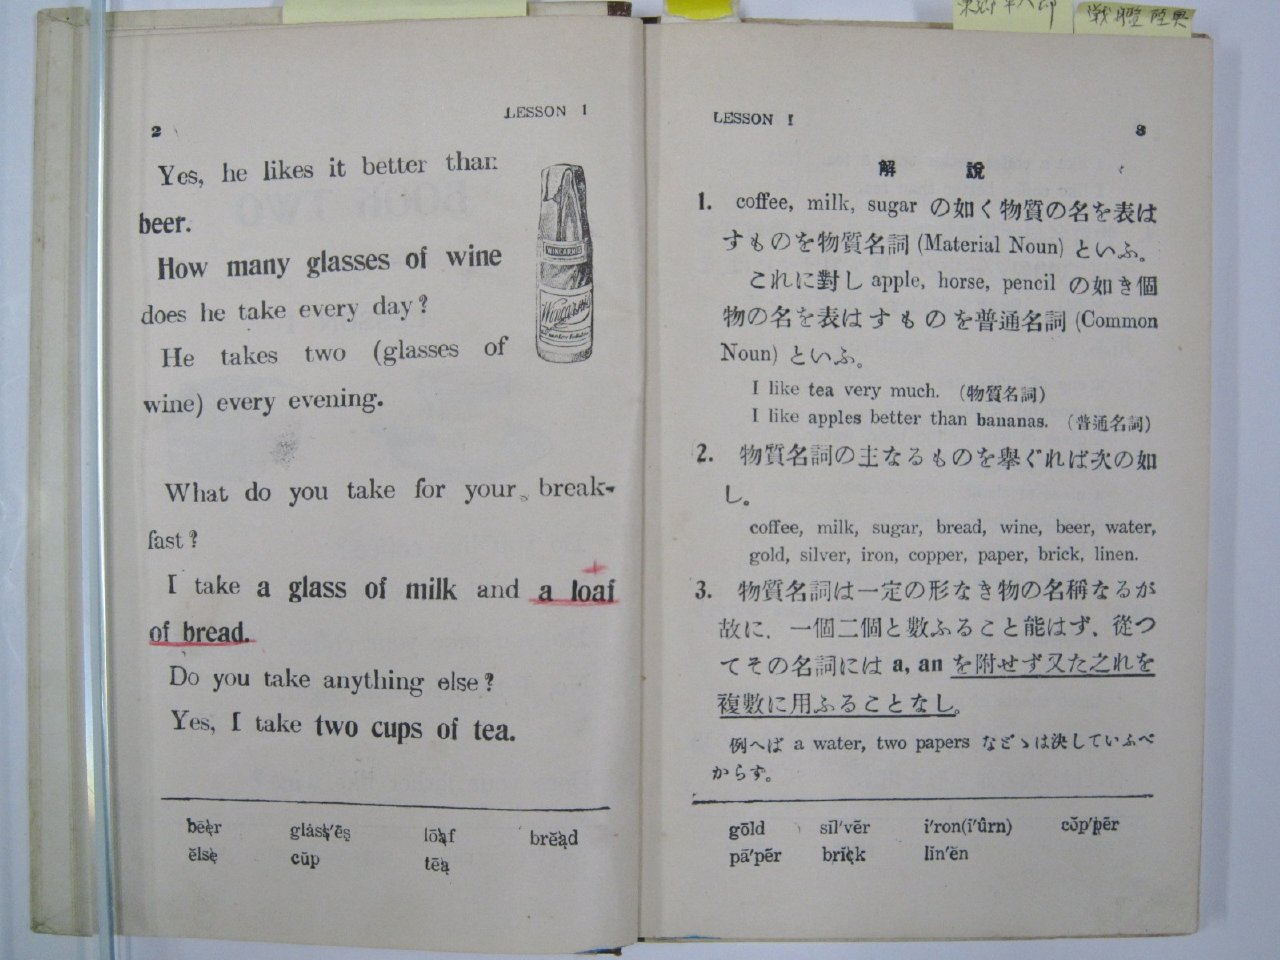 戦艦陸奥
2
LESSON I
Yes, he likes it better than
beer.
How many glasses of wine
does he take every day?
He takes two (glasses of
wine) every evening.
WINCARNIS
Wincarnis
What do you take for your break-
fast?
I take a glass of milk and a loaf
of bread.
Do you take anything else?
Yes, I take two cups of tea.
bēer glȧss'ĕs lōaf brĕad
ĕlse cŭp tēa
LESSON I
3
解說
1. coffee, milk, sugar の如く物質の名を表は
すものを物質名詞 (Material Noun) といふ。
これに對し apple, horse, pencil の如き個
物の名を表はすものを普通名詞 (Common
Noun) といふ。
I like tea very much. (物質名詞)
I like apples better than bananas. (普通名詞)
2. 物質名詞の主なるものを擧ぐれば次の如
し。
coffee, milk, sugar, bread, wine, beer, water,
gold, silver, iron, copper, paper, brick, linen.
3. 物質名詞は一定の形なき物の名稱なるが
故に、一個二個と數ふること能はず、從つ
てその名詞には a, an を附せず又た之れを
複數に用ふることなし。
例へば a water, two papers などゝは決していふべ
からず。
gōld sĭl'vẽr ī'ron(ī'ûrn) cŏp'pẽr
pā'pẽr brĭck lĭn'ĕn